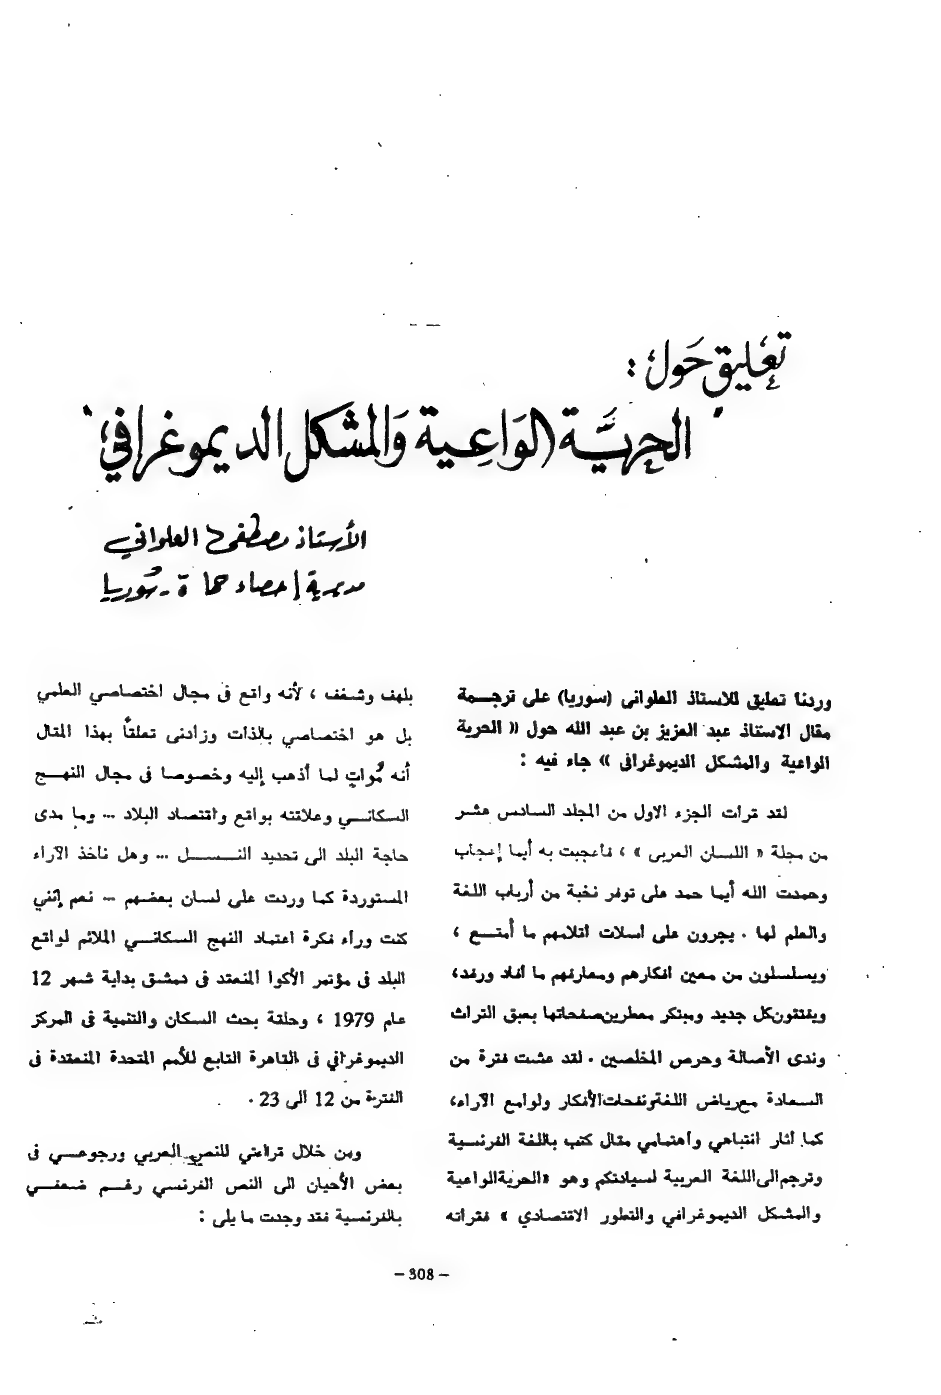 تعليق حول :
" الحرية الواعية والمشكل الديموغرافي "
الأستاذ مصطفى العلواني
مديرية إحصاء حماة - سوريا
وردنا تعليق للاستاذ العلوانى (سوريا) على ترجمة
مقال الاستاذ عبد العزيز بن عبد الله حول « الحرية
الواعية والمشكل الديموغرافى » جاء فيه :
لقد قرات الجزء الاول من المجلد السادس عشر
من مجلة « اللسان العربى » ، فأعجبت به أيما إعجاب
وحمدت الله أيما حمد على توفر نخبة من أرباب اللغة
والعلم لها . يجرون على اسلات اقلامهم ما أمتع ،
ويسلسلون من معين افكارهم ومعارفهم ما افاد ورفد،
ويفتقون كل جديد ومبتكر معطرين صفحاتها بعبق التراث
وندى الأصالة وحرص المخلصين . لقد عشت فترة من
السعادة مع رياض اللغة ونفحات الأفكار ولوامع الآراء،
كما اثار انتباهي واهتمامي مقال كتب باللغة الفرنسية
وترجم الى اللغة العربية لسيادتكم وهو «الحرية الواعية
والمشكل الديموغرافي والتطور الاقتصادي » فقرأته
بلهف وشغف ، لأنه واقع فى مجال اختصاصي العلمي
بل هو اختصاصي بالذات وزادنى تعلقاً بهذا المقال
أنه مُواتٍ لما أذهب إليه وخصوصا فى مجال النهج
السكانى وعلاقته بواقع واقتصاد البلاد ... وما مدى
حاجة البلد الى تحديد النسل ... وهل نأخذ الآراء
المستوردة كما وردت على لسان بعضهم ... نعم إننى
كنت وراء فكرة اعتماد النهج السكانى الملائم لواقع
البلد فى مؤتمر الأكوا المنعقد فى دمشق بداية شهر 12
عام 1979 ، وحلقة بحث السكان والتنمية فى المركز
الديموغرافي فى القاهرة التابع للأمم المتحدة المنعقدة فى
الفترة من 12 الى 23 .
ومن خلال قراءتي للنص العربي ورجوعي فى
بعض الأحيان الى النص الفرنسي رغم ضعفي
بالفرنسية فقد وجدت ما يلى :
– 308 –